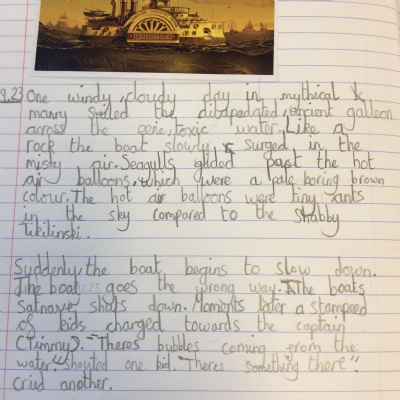 9.23 One windy, cloudy day in mythical &
manny sailed the dibdapedated, encient galleon
across the eerie, toxic water. Like a
rock the boat slowly surged in the
misty air. Seagulls glided past the hot
air balloons, which were a pale boring brown
colour. The hot air balloons were tiny ants
in the sky compared to the shabby
Tikilinski.
Suddenly, the boat begins to slow down.
The boat goes the wrong way. The boats
Satnave shuts down. Moments later a stampeed
of kids charged towards the captain
(Timmy). "Theres bubbles coming from the
water," shouted one kid. "Theres something there".
cried another.